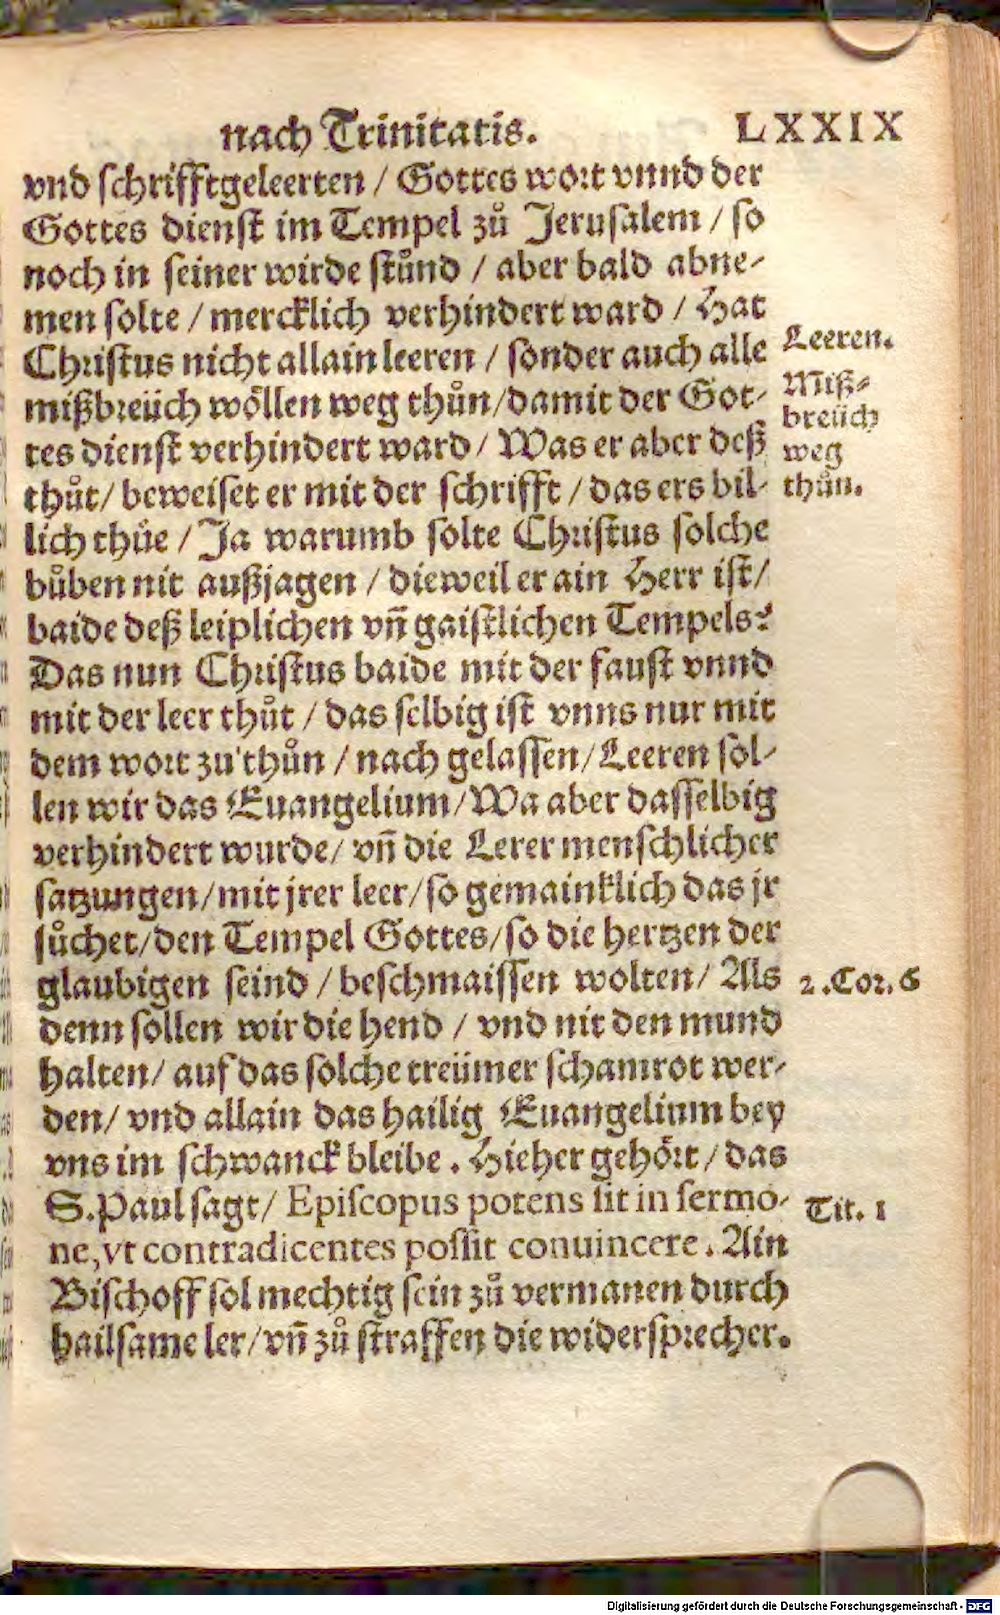 nach Trinitatis.
LXXIX
vnd schrifftgeleerten / Gottes wort vnnd der
Gottes dienst im Tempel zů Jerusalem / so
noch in seiner wirde stůnd / aber bald abne-
men solte / mercklich verhindert ward / Hat
Christus nicht allain leeren / sonder auch alle
mißbreüch wöllen weg thůn/damit der Got-
tes dienst verhindert ward / Was er aber deß
thůt/ beweiset er mit der schrifft / das ers bil-
lich thüe / Ja warumb solte Christus solche
bůben nit außjagen / dieweil er ain Herr ist/
baide deß leiplichen vñ gaistlichen Tempels?
Das nun Christus baide mit der faust vnnd
mit der leer thůt / das selbig ist vnns nur mit
dem wort zu thůn / nach gelassen/ Leeren sol-
len wir das Euangelium/Wa aber dasselbig
verhindert wurde/ vñ die Lerer menschlicher
satzungen/mit jrer leer/so gemainklich das jr
sůchet/den Tempel Gottes/so die hertzen der
glaubigen seind / beschmaissen wolten/ Als
denn sollen wir die hend / vnd nit den mund
halten/ auf das solche treümer schamrot wer-
den/ vnd allain das hailig Euangelium bey
vns im schwanck bleibe. Hieher gehört/ das
S. Paul sagt/ Episcopus potens sit in sermo-
ne, vt contradicentes possit conuincere. Ain
Bischoff sol mechtig sein zů vermanen durch
hailsame ler/vñ zů straffen die widersprecher.
Leeren.
Miß-
breüch
weg
thůn.
2. Cor. 6
Tit. 1
Digitalisierung gefördert durch die Deutsche Forschungsgemeinschaft - DFG